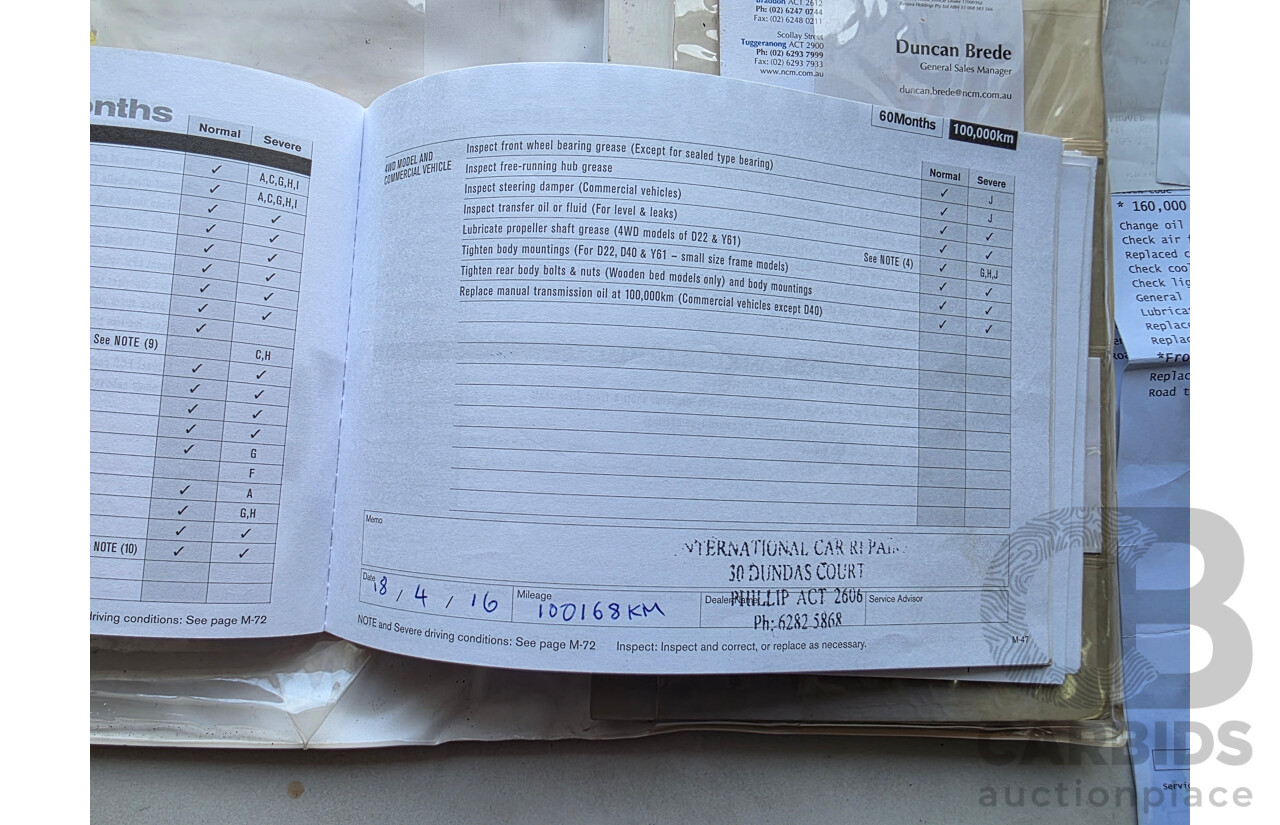 Braddon ACT 2612
Ph: (02) 6247 0744
Fax: (02) 6248 0211
Scollay Street
Tuggeranong ACT 2900
Ph: (02) 6293 7999
Fax: (02) 6293 7933
www.ncm.com.au
Duncan Brede
General Sales Manager
duncan.brede@ncm.com.au
onths
Normal Severe
✓ A,C,G,H,I
✓ A,C,G,H,I
✓ ✓
✓ ✓
✓ ✓
✓ ✓
✓ ✓
✓ ✓
✓
See NOTE (9) C,H
✓ ✓
✓ ✓
✓ ✓
✓ ✓
✓ G
F
✓ A
✓ G,H
✓ ✓
NOTE (10) ✓ ✓
driving conditions: See page M-72
60Months 100,000km
4WD MODEL AND
COMMERCIAL VEHICLE
Normal Severe
Inspect front wheel bearing grease (Except for sealed type bearing) ✓ J
Inspect free-running hub grease ✓ J
Inspect steering damper (Commercial vehicles) ✓ ✓
Inspect transfer oil or fluid (For level & leaks) ✓ ✓
Lubricate propeller shaft grease (4WD models of D22 & Y61) See NOTE (4) ✓ G,H,J
Tighten body mountings (For D22, D40 & Y61 – small size frame models) ✓ ✓
Tighten rear body bolts & nuts (Wooden bed models only) and body mountings ✓ ✓
Replace manual transmission oil at 100,000km (Commercial vehicles except D40) ✓ ✓
Memo
INTERNATIONAL CAR REPAIR
30 DUNDAS COURT
PHILLIP ACT 2606
Ph: 6282 5868
Date 18 / 4 / 16
Mileage 100168KM
Dealer Name
Service Advisor
NOTE and Severe driving conditions: See page M-72 Inspect: Inspect and correct, or replace as necessary.
M-47
* 160,000
Change oil
Check air
Replaced
Check coo
Check lig
General
Lubrica
Replac
Replac
*Fro
Replac
Road t
Servi
CARBIDS
auctionplace